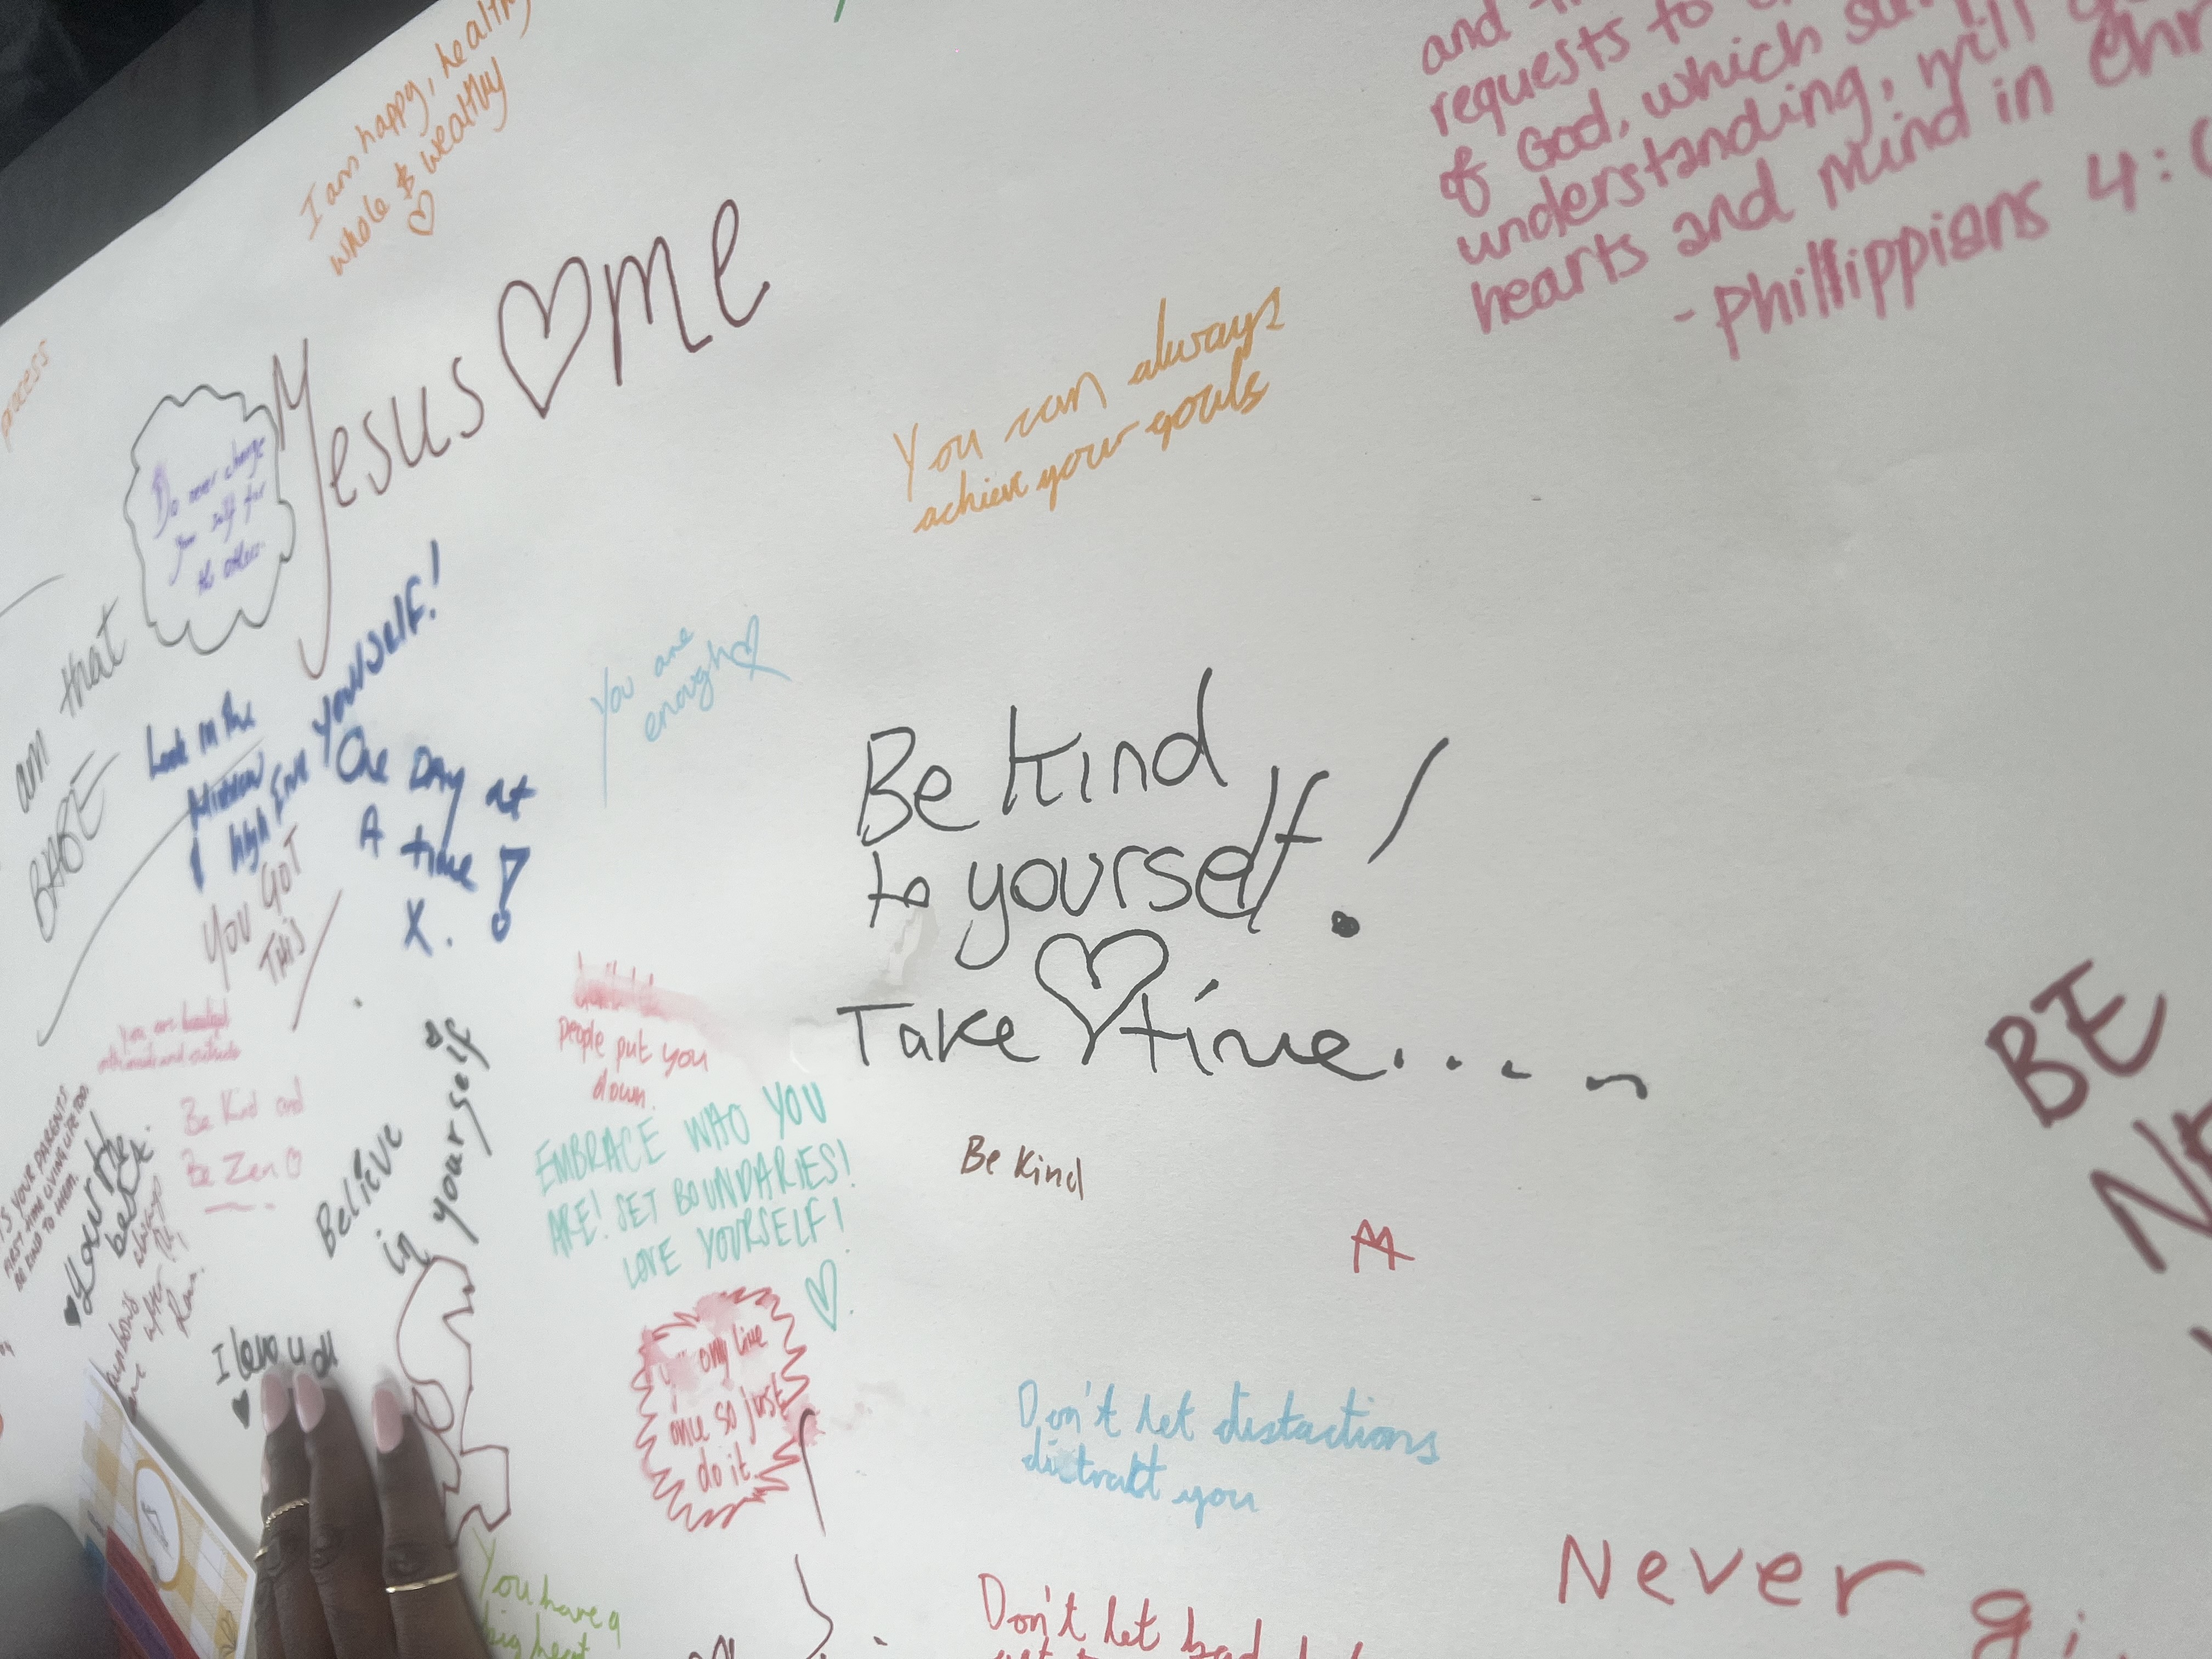 I am happy, healthy
whole & wealthy
and
requests to
of God, which
understanding, will
hearts and mind in
- Phillippians 4:
process
Jesus ♡ me
Do never change
your self for
the others.
You can always
achieve your goals
am that
BABE
Look in the
Mirror
high Five YOURSELF!
One DAY at
A time!
X.
You are
enough ♡
YOU GOT
THIS
Be kind
to yourself!
Take ♡ time....
people put you
down.
You are beautiful
Be Kind and
Be Zen
YOUR PARENTS
FIRST TIME LIVING LIFE TOO
BE KIND TO THEM.
♥ You're the
best.
always
after
Believe
in yourself
EMBRACE WHO YOU
ARE! SET BOUNDARIES!
LOVE YOURSELF!
♡
Be Kind
BE
I love you
♥
only live
once so just
do it.
Don't let distactions
distrakt you
You have a
big heart
Don't let bad
Never